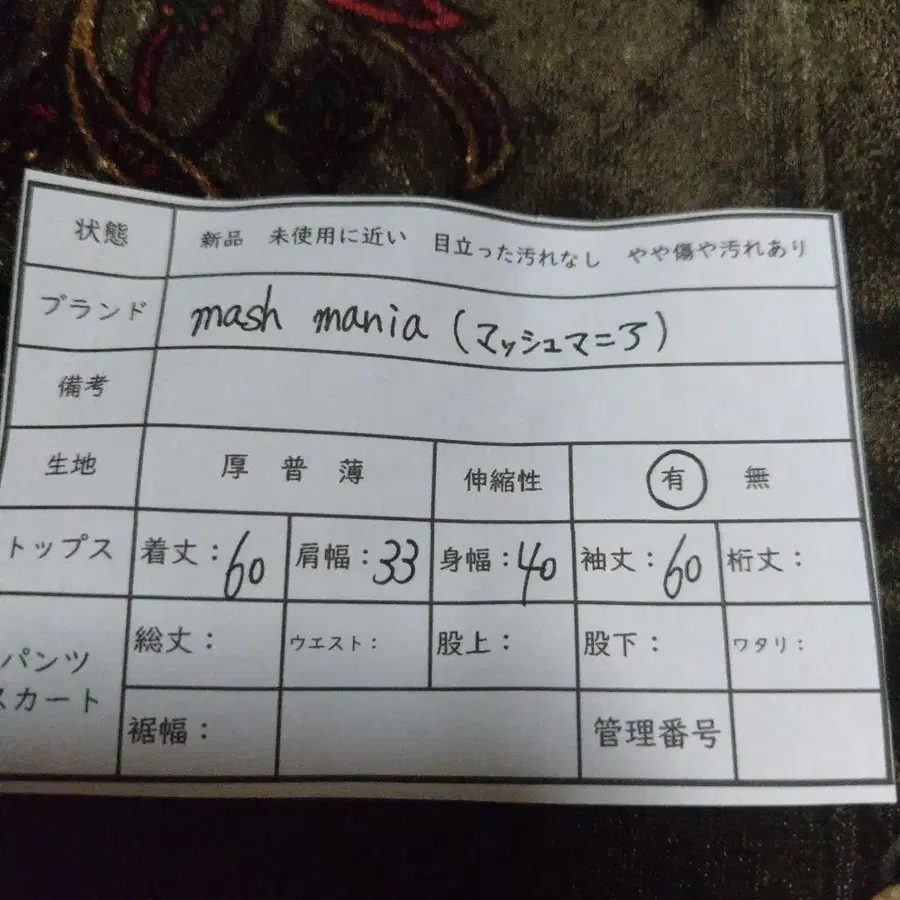 状態 新品 未使用に近い 目立った汚れなし やや傷や汚れあり
ブランド mash mania (マッシュマニア)
備考
生地 厚 普 薄 伸縮性 有 無
トップス 着丈：60 肩幅：33 身幅：40 袖丈：60 裄丈：
パンツ 総丈： ウエスト： 股上： 股下： ワタリ：
スカート
裾幅： 管理番号